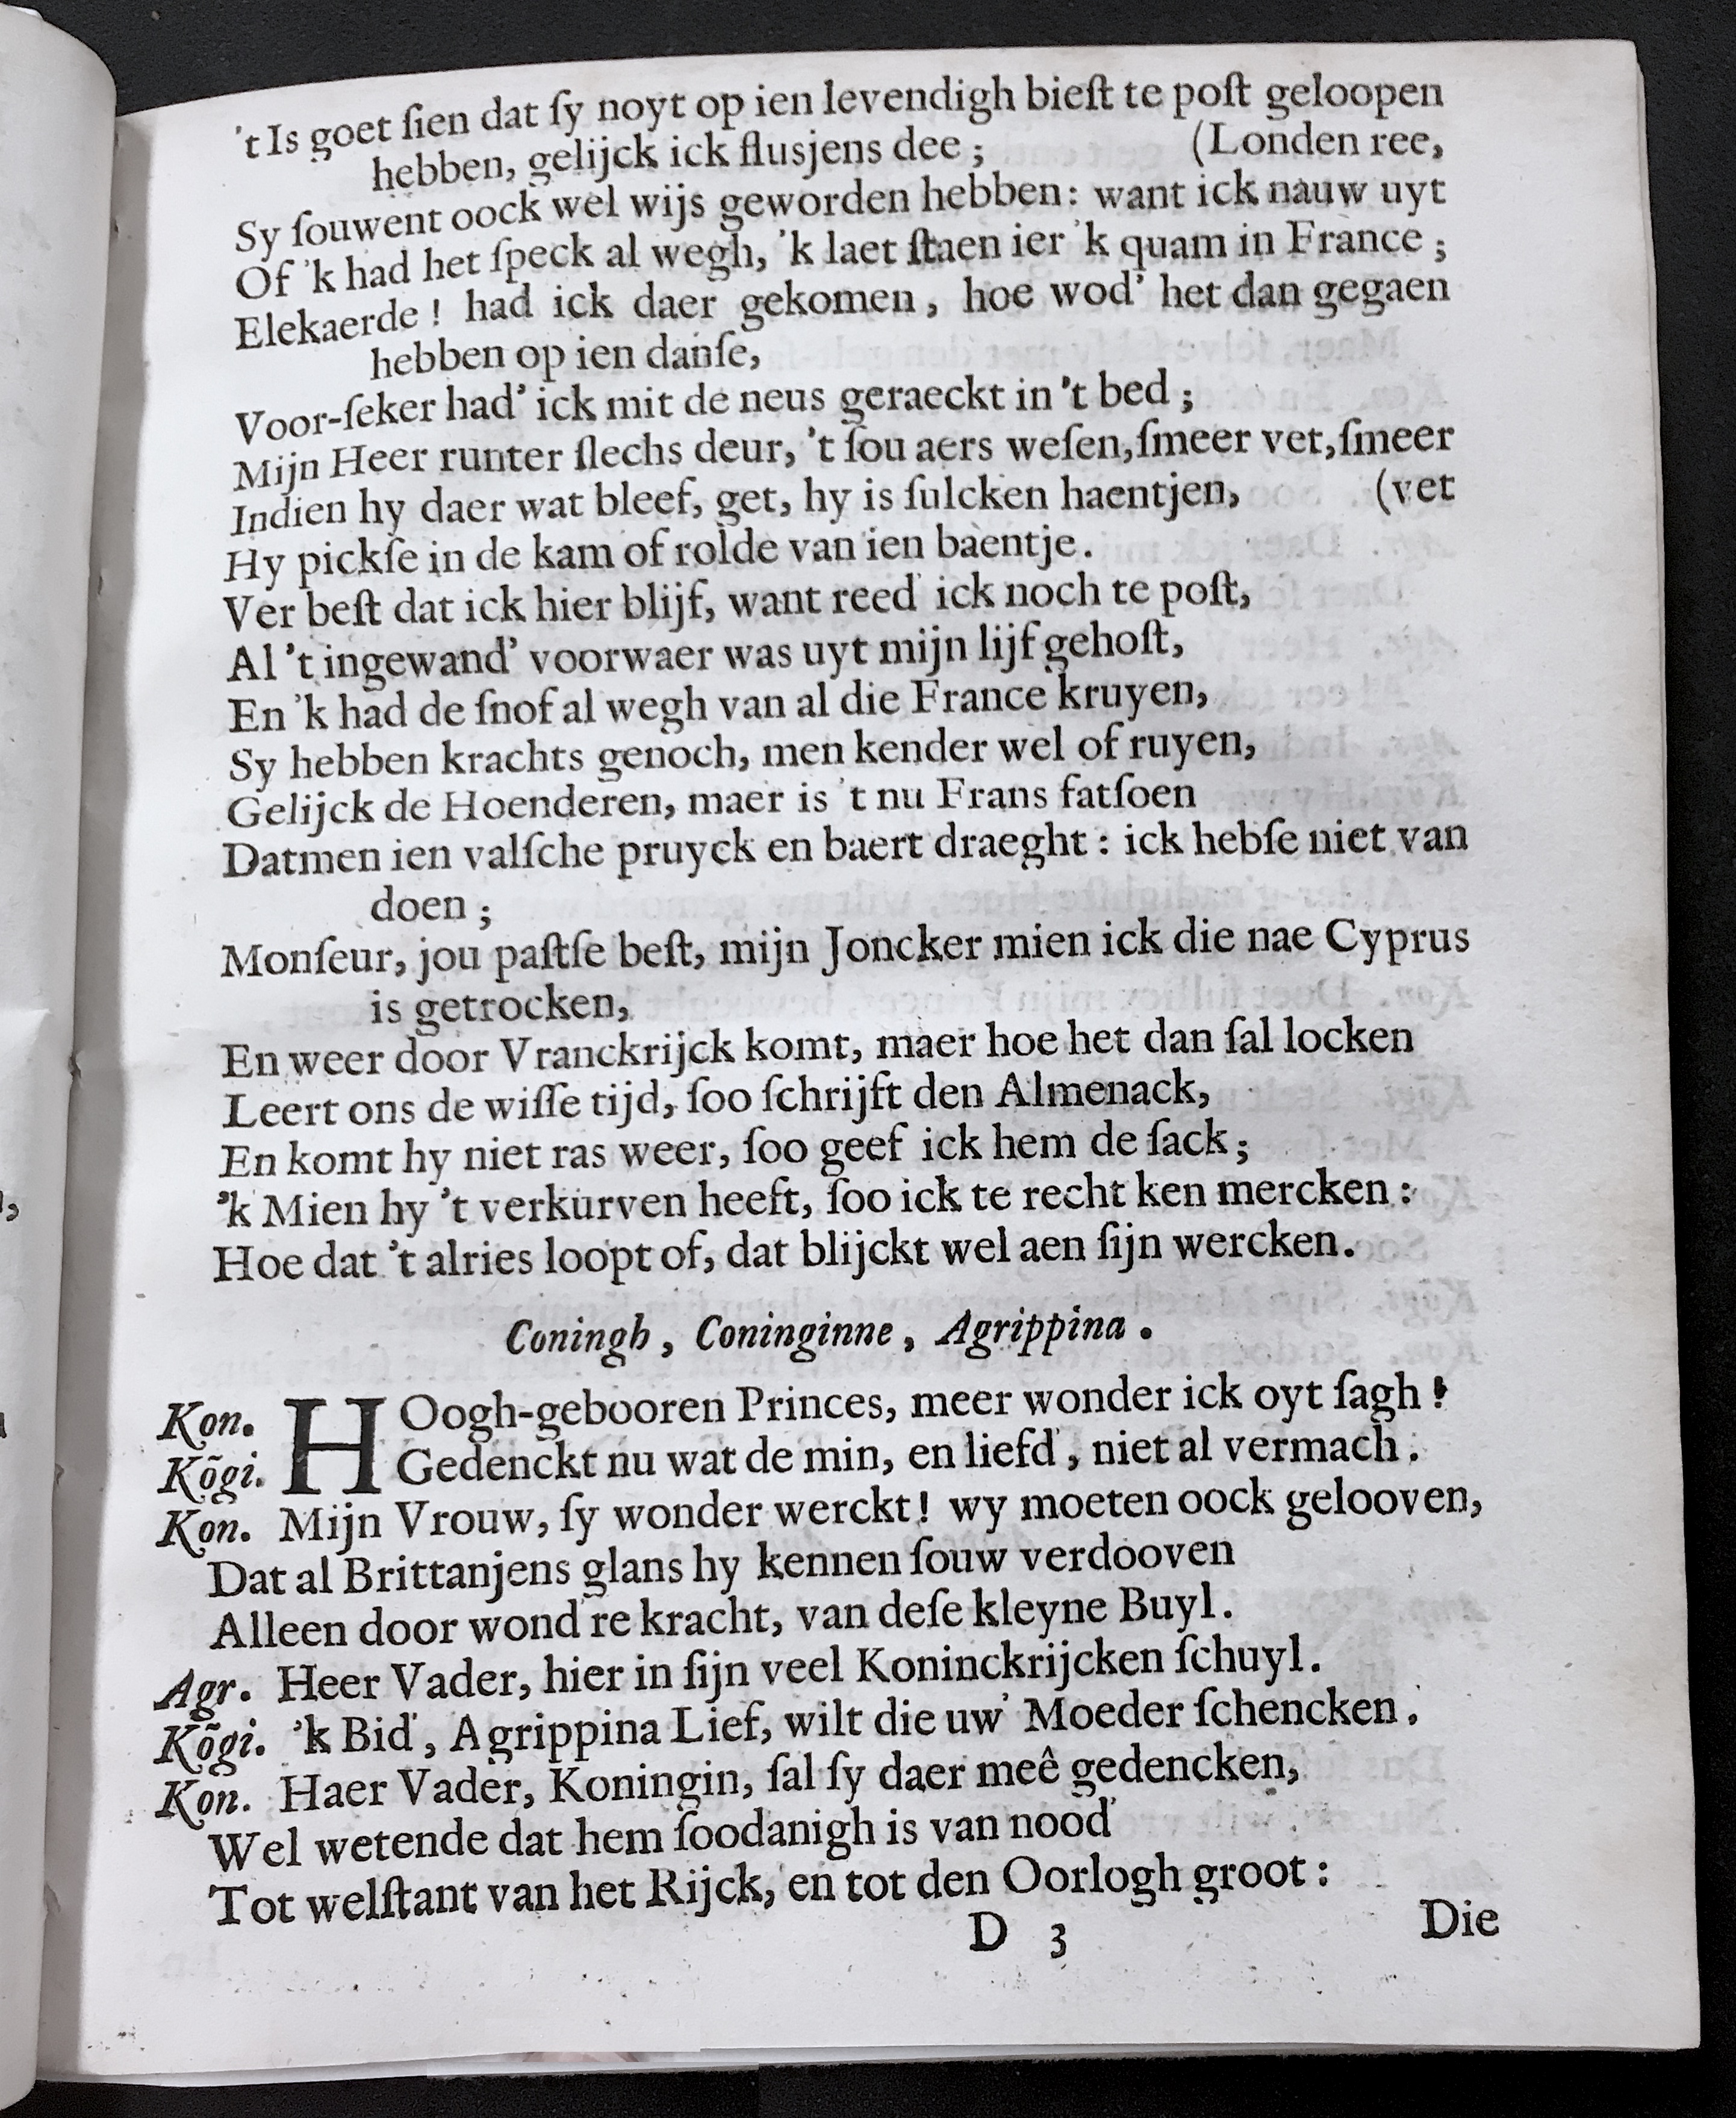 't Is goet ſien dat ſy noyt op ien levendigh bieſt te poſt geloopen
hebben, gelijck ick fluſjens dee ; (Londen ree,
Sy ſouwent oock wel wijs geworden hebben: want ick nauw uyt
Of 'k had het ſpeck al wegh, 'k laet ſtaen ier 'k quam in France ;
Elekaerde ! had ick daer gekomen, hoe wod' het dan gegaen
hebben op ien danſe,
Voor-ſeker had' ick mit de neus geraeckt in 't bed ;
Mijn Heer runter ſlechs deur, 't ſou aers weſen, ſmeer vet, ſmeer
Indien hy daer wat bleef, get, hy is ſulcken haentjen, (vet
Hy pickſe in de kam of rolde van ien baentje.
Ver beſt dat ick hier blijf, want reed' ick noch te poſt,
Al 't ingewand' voorwaer was uyt mijn lijf gehoſt,
En 'k had de ſnof al wegh van al die France kruyen,
Sy hebben krachts genoch, men kender wel of ruyen,
Gelijck de Hoenderen, maer is 't nu Frans fatſoen
Datmen ien valſche pruyck en baert draeght : ick hebſe niet van
doen ;
Monſeur, jou paſtſe beſt, mijn Joncker mien ick die nae Cyprus
is getrocken,
En weer door Vranckrijck komt, maer hoe het dan ſal locken
Leert ons de wiſſe tijd, ſoo ſchrijft den Almenack,
En komt hy niet ras weer, ſoo geef ick hem de ſack ;
'k Mien hy 't verkurven heeft, ſoo ick te recht ken mercken :
Hoe dat 't alries loopt of, dat blijckt wel aen ſijn wercken.
Coningh, Coninginne, Agrippina.
Kon. HOogh-gebooren Princes, meer wonder ick oyt ſagh !
Kõgi. Gedenckt nu wat de min, en liefd', niet al vermach.
Kon. Mijn Vrouw, ſy wonder werckt ! wy moeten oock gelooven,
Dat al Brittanjens glans hy kennen ſouw verdooven
Alleen door wond're kracht, van deſe kleyne Buyl.
Agr. Heer Vader, hier in ſijn veel Koninckrijcken ſchuyl.
Kõgi. 'k Bid', Agrippina Lief, wilt die uw' Moeder ſchencken.
Kon. Haer Vader, Koningin, ſal ſy daer meê gedencken,
Wel wetende dat hem ſoodanigh is van nood'
Tot welſtant van het Rijck, en tot den Oorlogh groot :
D 3 Die